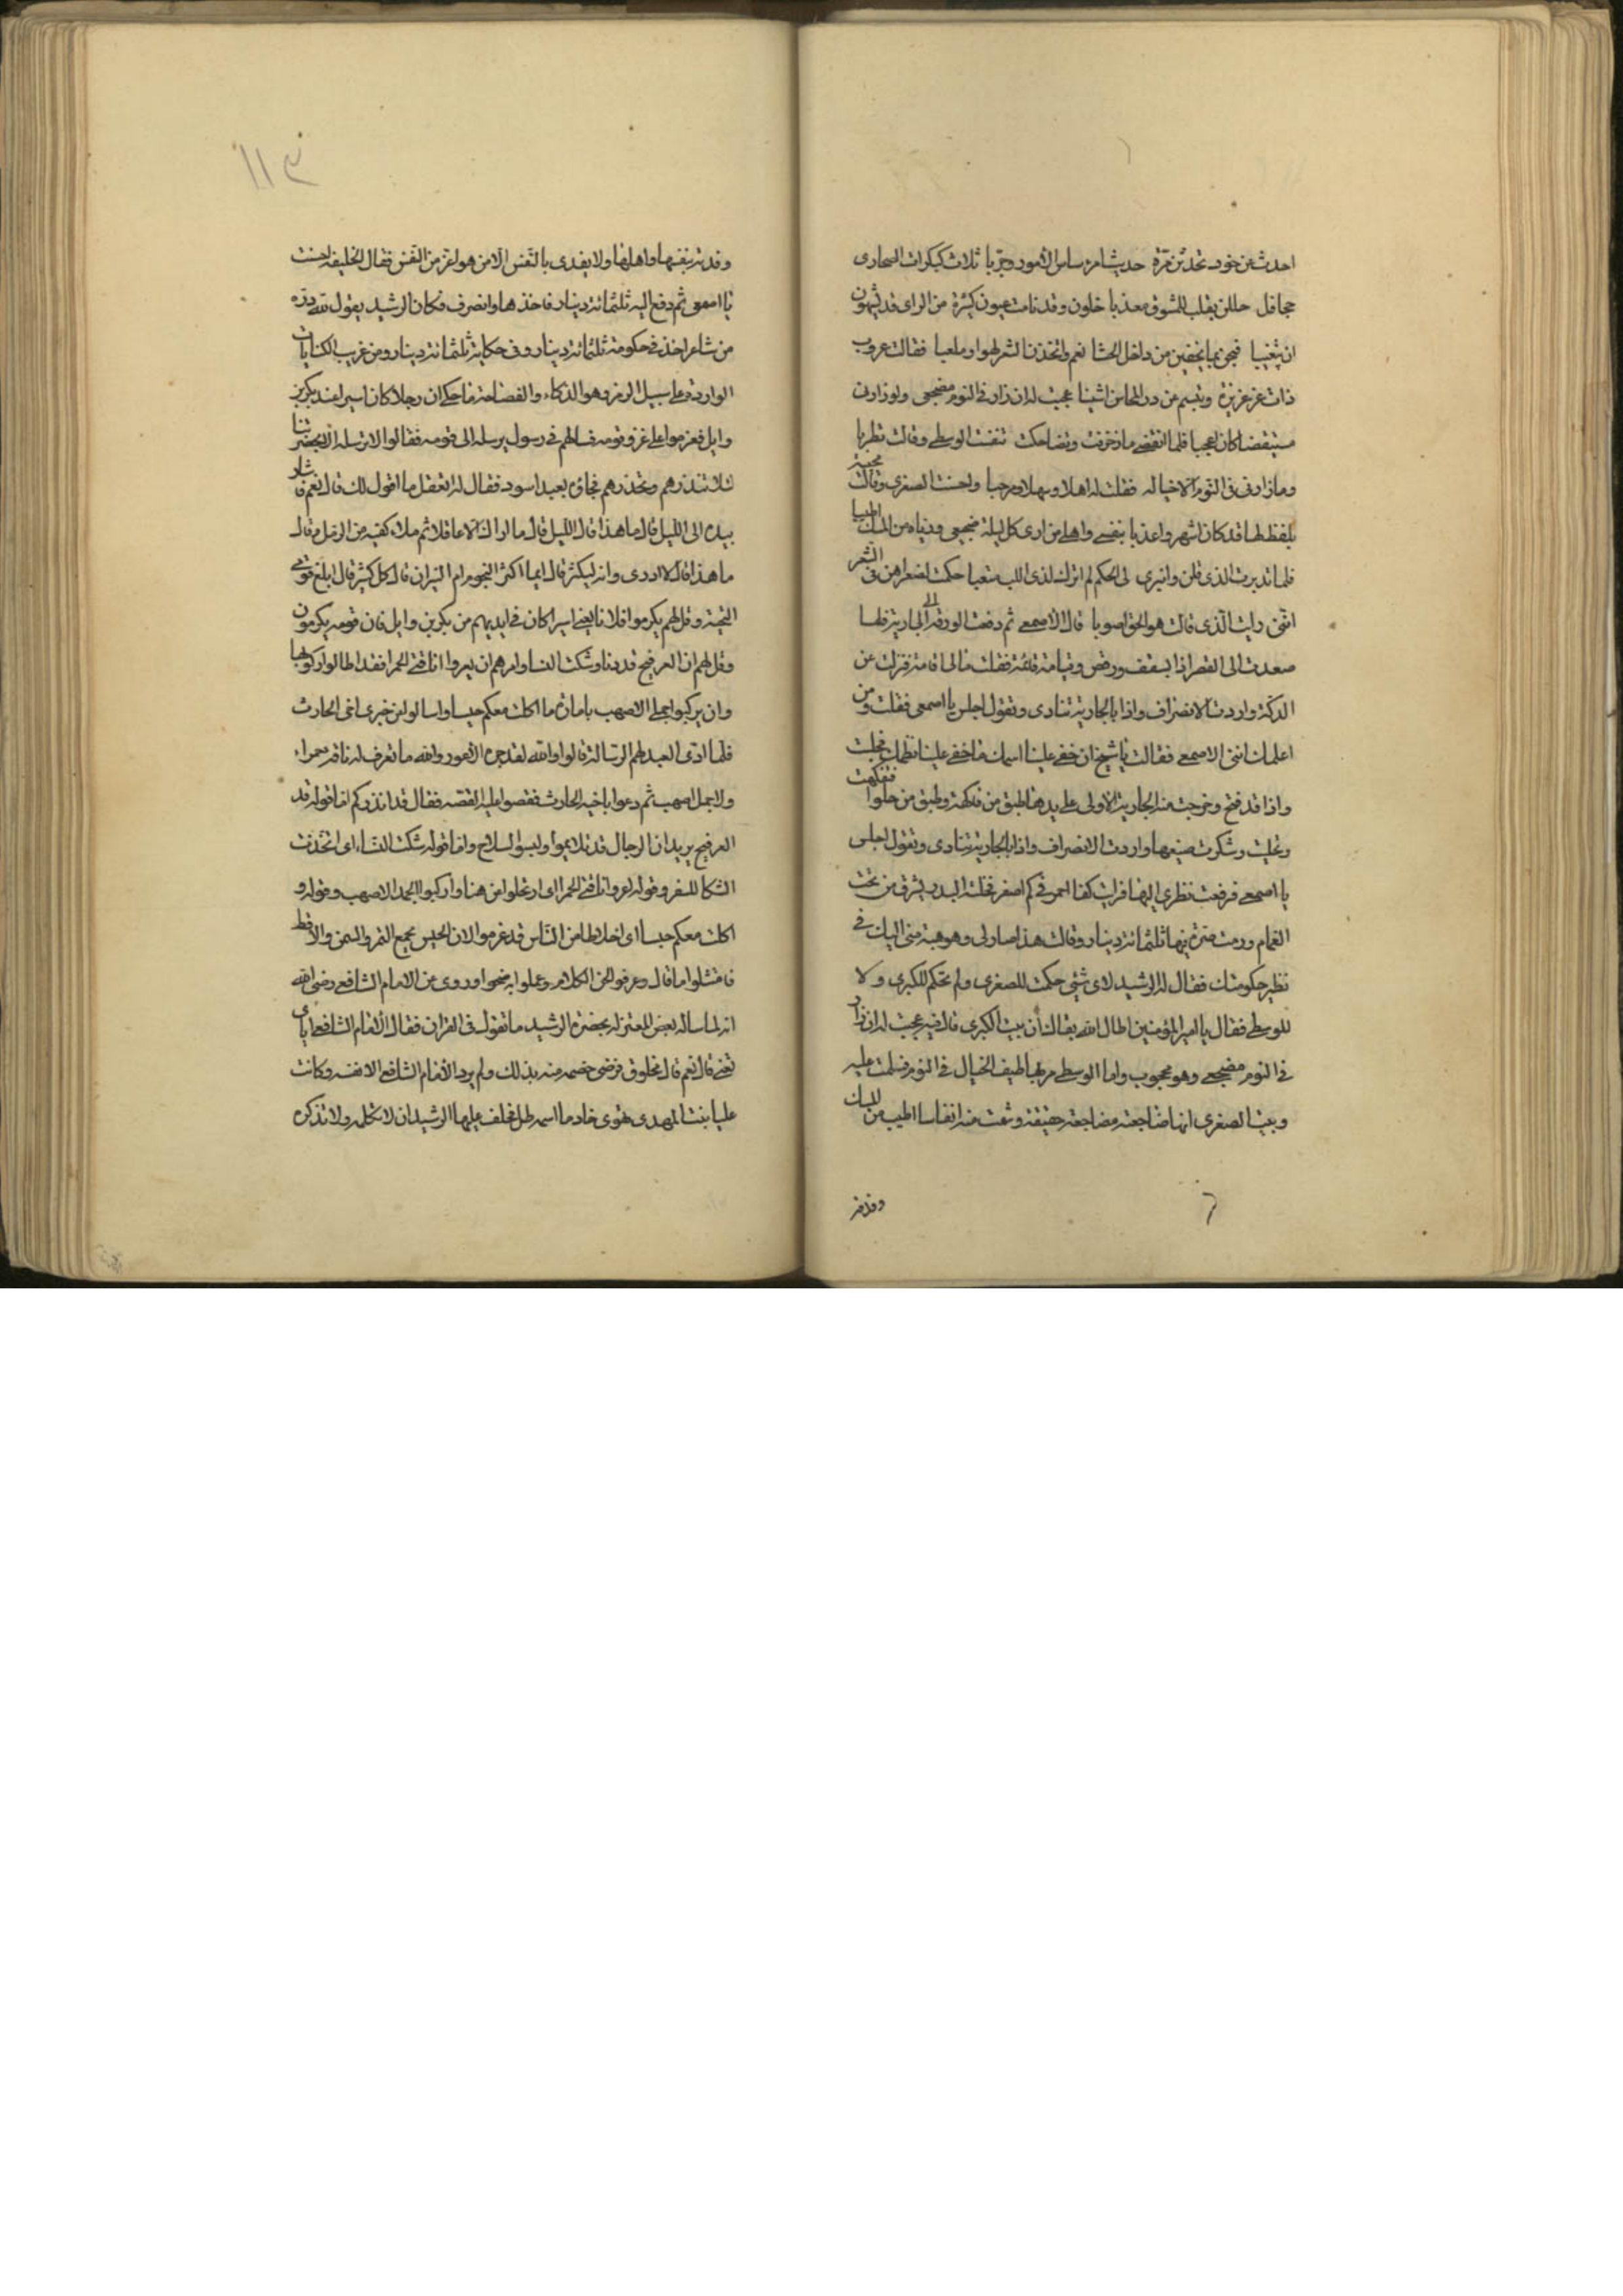 احدث عن خود تحدثن مرة حديث امرء ساس الامور وجربا ثلاث كبكرات الصحارى
جحافل حللن بقلب للمشوق معذبا خلون وقد نامت عيون كثيرة من الراى قد
فبحن بما يخفين من داخل الحشا نعم واتخذن الشعر لهوا وملعبا فقالت عروب
ذات عز عزيزة وتبسم عن در المحاسن اشنبا عجبت له ان زار فى النوم مضجعى ولو زارنى
مستيقضا كان اعجبا فلما انقضى ما زخرفت وتضاحكت تنفست الوسطى وقالت تطربا
وما زارنى فى النوم الا خياله فقلت له اهلا وسهلا ومرحبا واحسنت الصغرى وقالت مجيبة
بلفظ لها قد كان اشهر واعذبا بنفسى واهلى من ارى كل ليلة ضجيعى ورياه من المسك اطيبا
فلما تدبرت الذى قلن وانبرى لى الحكم لم اترك لذى اللب متعبا حكمت لصغراهن فى الشعر
اننى رايت الذى قالت هو الحق اصوبا قال الاصمعى ثم دفعت الورقة الى الجارية فلما
صعدت الى القصر اذا بسقف ورقص وقيامة قائمة فقلت مالى اقامة فنزلت عن
الدكة واردت الانصراف واذا بالجارية تنادى وتقول اجلس يا اصمعى فقلت ومن
اعلمك اننى الاصمعى فقالت يا شيخ ان خفى علينا اسمك ما خفى علينا نظمك فجلست
واذا قد فتح وخرجت منه الجارية الاولى على يدها طبق من فاكهة وطبق من حلوا فتفكهت
وتحليت وشكرت صنيعها واردت الانصراف واذا بالجارية تنادى وتقول اجلس
يا اصمعى فرفعت نظرى اليها فرايت كفا احمر فى كم اصفر فخلته البدر يشرق من تحت
الغمام ورمت صرة فيها ثلثمائة دينار وقالت هذا صار لى وهو هبة منى اليك فى
نظير حكومتك فقال له الرشيد لاى شيئ حكمت للصغرى ولم تحكم للكبرى ولا
للوسطى فقال يا امير المؤمنين اطال الله بقاك ان بيت الكبرى قالت فيه عجبت له ان زار
فى النوم مضجعى وهو محجوب واما الوسطى مر بها طيف الخيال فى النوم فسلمت عليه
وبيت الصغرى انها ضاجعته مضاجعة حقيقة وشمت منه انفاسا اطيب من المسك
وفدته
١١٣
وفدته بنفسها واهلها ولا يفدى بالنفس الا من هو اعز من النفس فقال الخليفة احسنت
يا اصمعى ثم دفع اليه ثلثمائة دينار فاخذها وانصرف فكان الرشيد يقول لله دره
من شاعر اخذ فى حكومة ثلثمائة دينار وفى حكاية ثلثمائة دينار ومن غريب الكنايات
الواردة على سبيل الرمز وهو الذكاء والفصاحة ما حكى ان رجلا كان اسير عند بكر بن
وايل فعزموا على غزو قومه فسالهم فى رسول يرسله الى قومه فقالوا لا ترسله الا بحضرتنا
لئلا تنذرهم وتحذرهم فجاؤه بعبد اسود فقال له اتعقل ما اقول لك قال نعم فاشار
بيده الى الليل قال ما هذا قال الليل قال ما اراك الا عاقلا ثم ملا كفيه من الرمل وقال
ما هذا قال لا ادرى وانه ليكثر قال ايما اكثر النجوم ام النيران قال كل كثير قال ابلغ قومى
التحية وقل لهم يكرموا فلانا يعنى اسيرا كان فى ايديهم من بكر بن وايل فان قومه يكرمون
وقل لهم ان العرفج قد دنا وشكت النسا وامرهم ان يعروا ناقتى الحمرا فقد اطالوا ركوبها
وان يركبوا جملى الاصهب بامارة ما اكلت معكم حيسا واسالوا عن خبرى اخى الحارث
فلما ادى العبد لهم الرسالة قالوا والله لقد جن الاعور والله ما نعرف له ناقة حمراء
ولا جمل اصهب ثم دعوا باخيه الحارث فقصوا عليه القصه فقال قد انذركم اما قوله قد
العرفج يريد ان الرجال قد تلايموا ولبسوا السلاح واما قوله شكت النساء اى اتخذت
الشكا للسفر وقوله اعروا ناقتى الحمرا اى ارتحلوا عن هنا واركبوا الجمل الاصهب وقوله و
اكلت معكم حيسا اى اخلاطا من الناس قد عزموا لان الحيس يجمع التمر والسمن والاقط
فامتثلوا ما قال وعرفوا لحن الكلام وعملوا به فنجوا وروى عن الامام الشافعى رضى الله
انه لما ساله بعض المعتزلة بحضرة الرشيد ما تقول فى القران فقال الامام الشافعى اياى
تعنى قال نعم قال مخلوق فرضى خصمه منه بذلك ولم يرد الامام الشافعى الا نفسه وكانت
عليا بنت المهدى تهوى خادما اسمه طل فحلف عليها الرشيد ان لا تكلمه ولا تذكره